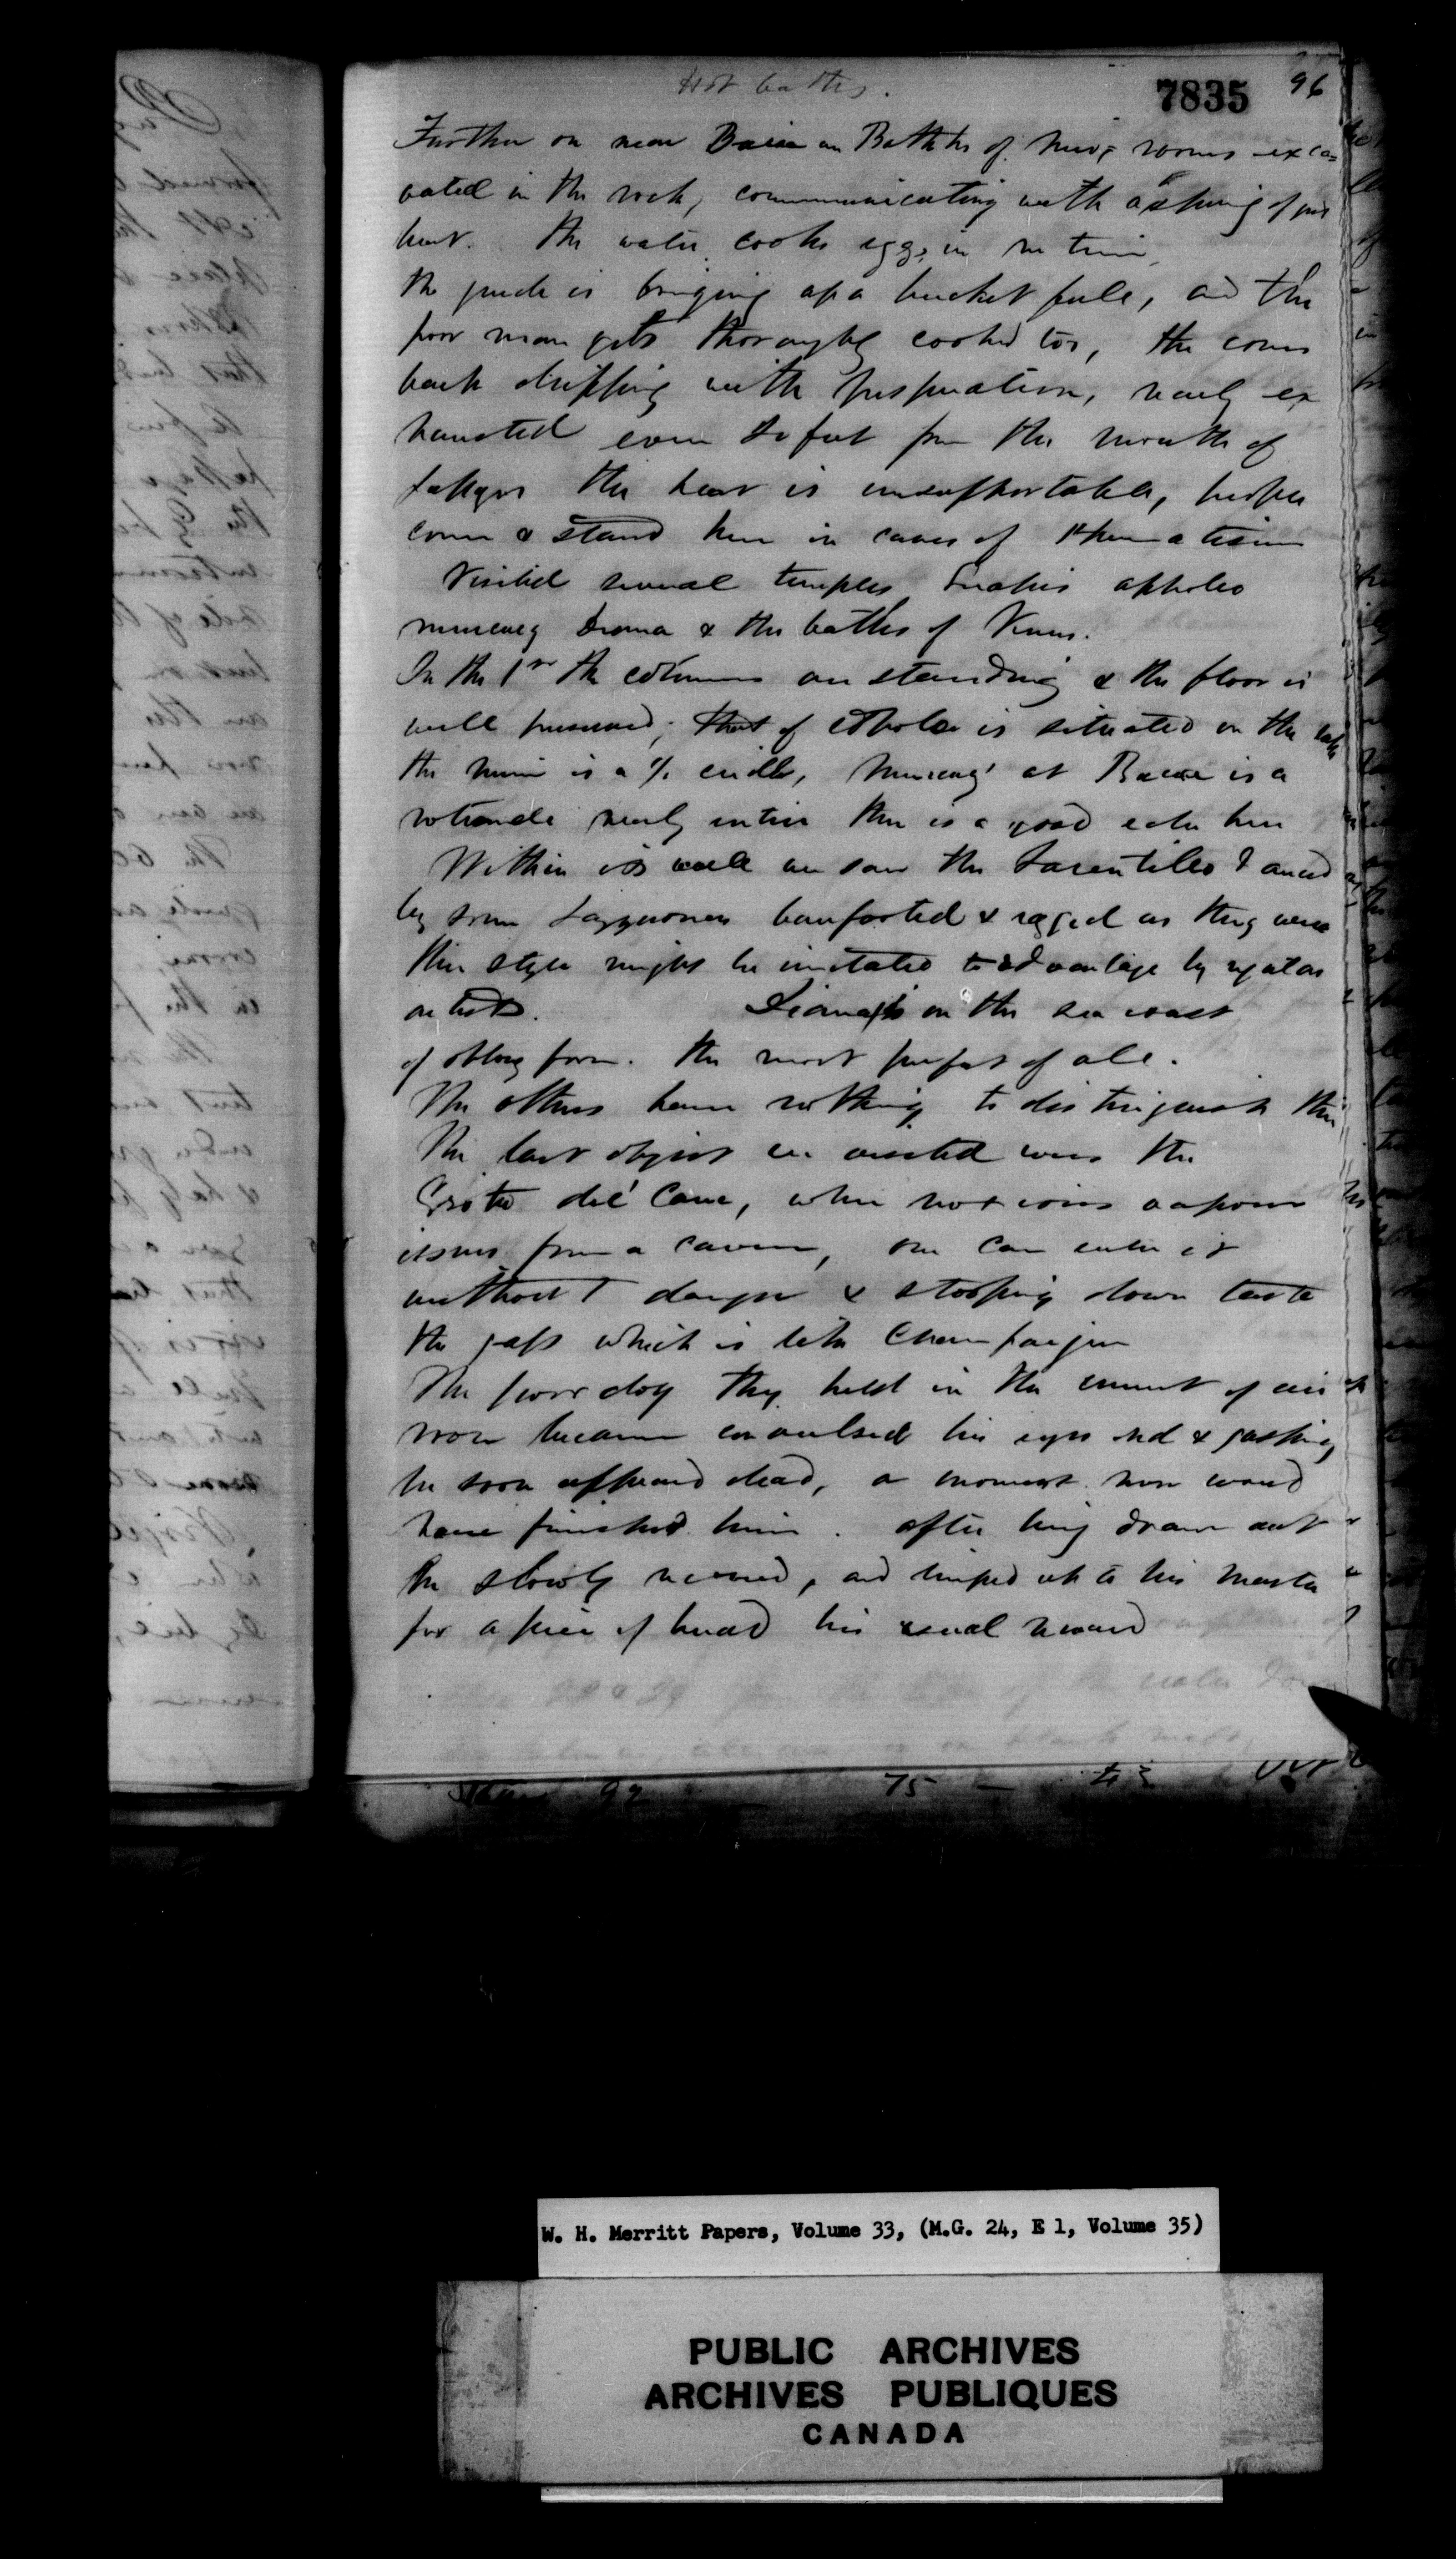 Hot baths.
7835 96
Further on near Baiae are Baths of Nero; rooms exca=
vated in the rock, communicating with a spring of
heat. The water cooks eggs in no time,
the guide is bringing up a bucket full, and the
poor man gets thoroughly cooked too, he comes
back dripping with perspiration, nearly ex
hausted even feet from the mouth of
the heat is insupportable, people
come & stand here in cases of rheumatism
Visited several temples Serapis Apollo
Mercury Diana & the baths of Venus.
In the 1st the columns are standing & the floor is
well preserved; that of Apollo is situated on the lake
the ruin is a ½ circle, Mercury' at Baiae is a
rotunda nearly entire there is a good echo here
Within its wall we saw the Tarentella danced
by some Lazzaroni barefooted & ragged as they were
their style might be imitated to advantage by
artists. Diana's on the sea coast
of oblong form. the most perfect of all.
The others have nothing to distinguish them
The last object we visited was the
Grotto del Cane, where noxious vapour
issues from a cavern, one can enter it
without danger & stooping down taste
the gass which is like Champaigne
The poor dog they held in the current of air
soon became convulsed his eyes red & gasping
he soon appeared dead, a moment more would
have finished him. after being drawn out
he slowly revived, and limped up to his master
for a piece of bread his usual reward
W. H. Merritt Papers, Volume 33, (M.G. 24, E 1, Volume 35)
PUBLIC ARCHIVES
ARCHIVES PUBLIQUES
CANADA